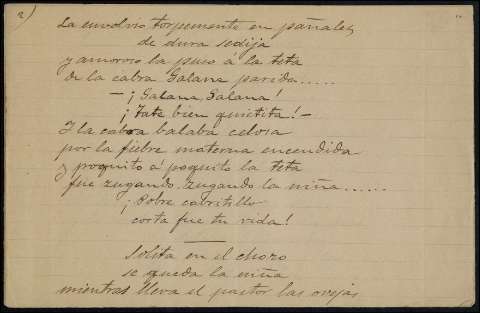 2)
La envolvió torpemente en pañales
de dura sedija
y amoroso la puso á la teta
de la cabra Galana parida.....
— ¡Galana, Galana!
¡Tate bien quietita! —
Y la cabra balaba celosa
por la fiebre materna encendida
y poquito á poquito la teta
fue zugando, zugando la niña......
¡Pobre cabritillo
corta fue tu vida!
Solita en el chozo
se queda la niña
mientras lleva el pastor las ovejas